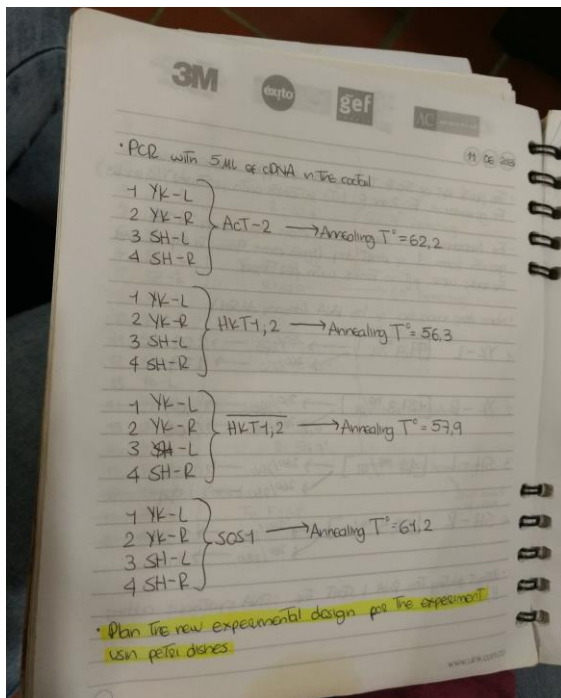 3M
éxito
gef
AC
11 06 2015
• PCR with 5 ML of cDNA in the coctal
1 YK-L
2 YK-R
3 SH-L
4 SH-R
AcT-2 → Annealing T° = 62,2
1 YK-L
2 YK-R
3 SH-L
4 SH-R
HKT1,2 → Annealing T° = 56,3
1 YK-L
2 YK-R
3 SH-L
4 SH-R
HKT1,2 → Annealing T° = 57,9
1 YK-L
2 YK-R
3 SH-L
4 SH-R
SOS1 → Annealing T° = 61,2
• Plan The new experimental design for The experiment
usin petri dishes